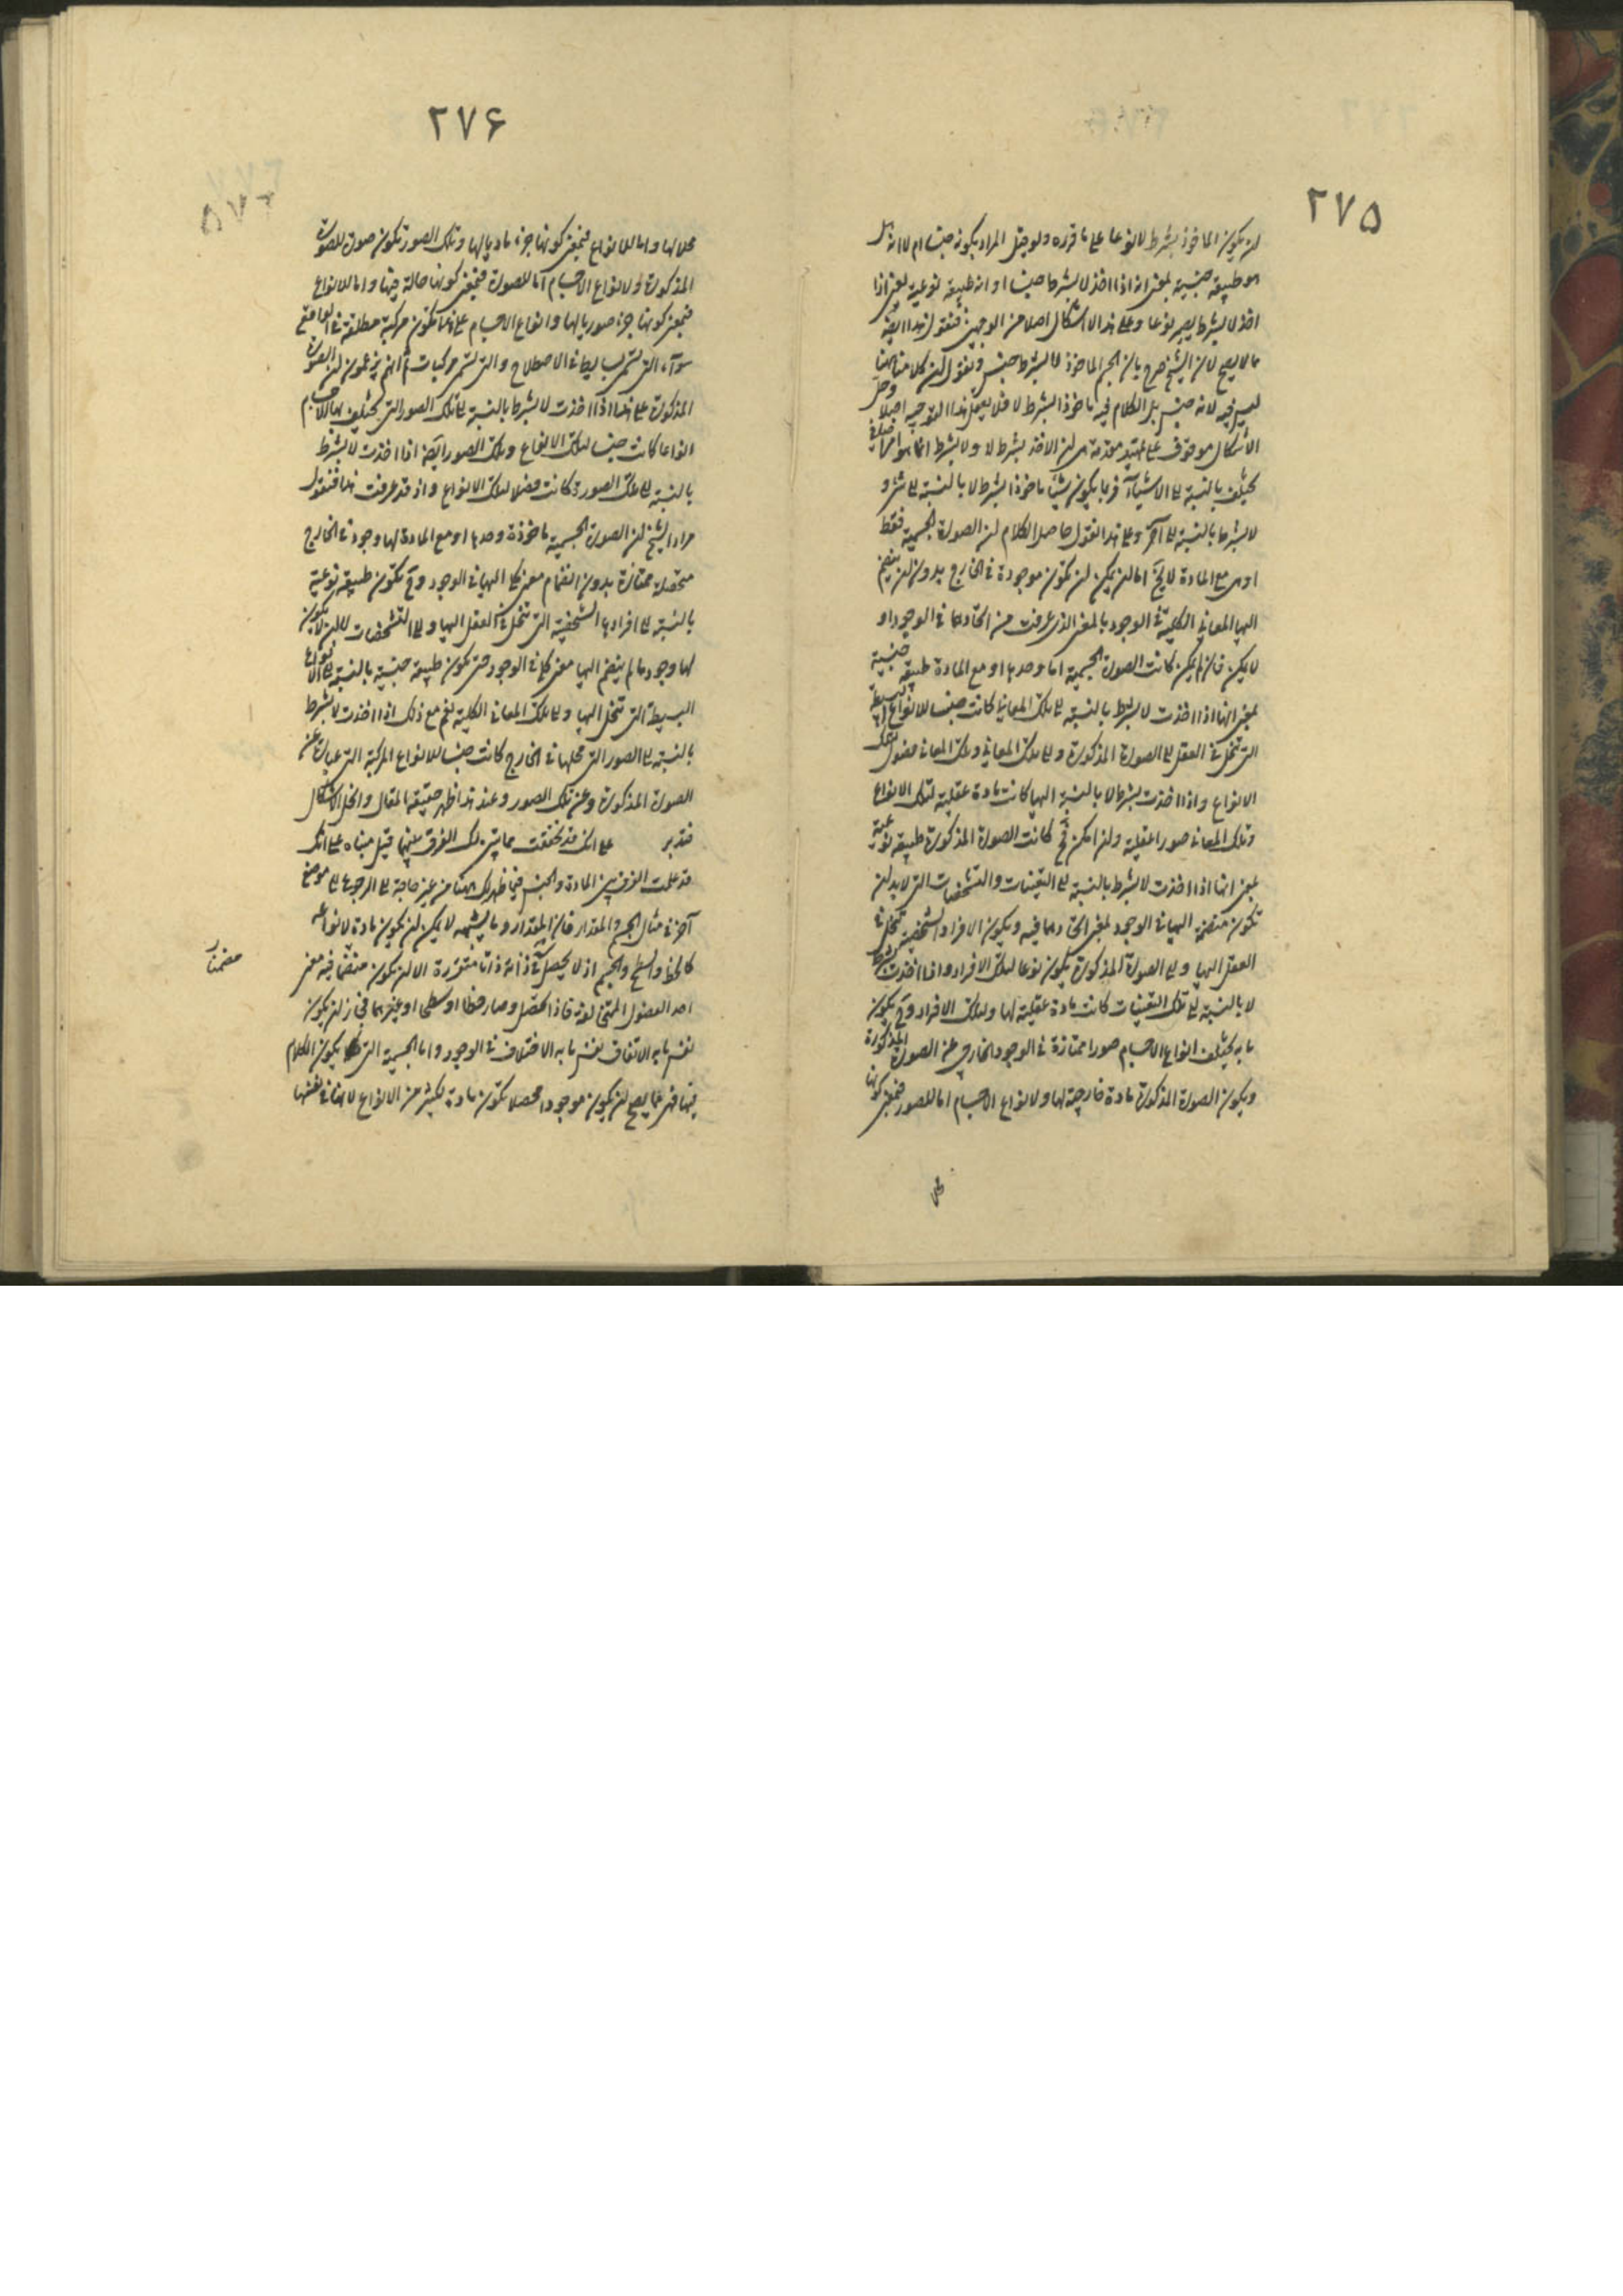 ٢٧٥
لن يكون الماخوذ بشرط لا نوعا على ما قرره ولو قيل المراد بكونه جنسا ام لا انه هل
هو طبيعة جنسية بمعنى انه اذا اخذ لا بشرط جنسا او انه طبيعة نوعية بمعنى اذا
اخذ لا بشرط يصير نوعا وعلى هذا لا اشكال اصلا من الوجهين فنقول هذا ايضا
مما لا يصح لان الشيخ صرح بان الجسم الماخوذ لا بشرط جنس ونقول لن كلامنا ههنا
ليس فيه لانه جنس بل الكلام فيه ماخوذا بشرط لا فلا يعمل هذا التوجيه اصلا وحل
الاشكال موقوف على تمهيد مقدمة هي لن الاخذ بشرط لا ولا بشرط انما هو امر اضافي
يختلف بالنسبة الى الاشياء فربما يكون شيئا ماخوذا بشرط لا بالنسبة الى شئ و
لا بشرط بالنسبة الى آخر وعلى هذا نقول حاصل الكلام لن الصورة الجسمية فقط
او هي مع المادة لا يخ اما لن يمكن لن تكون موجودة في الخارج بدون لن ينضم
اليها المعاني الكلية في الوجود بالمعنى الذي عرفت من اتحادهما في الوجود او
لا يمكن فان لم يمكن كانت الصورة الجسمية اما وحدها او مع المادة طبيعة جنسية
بمعنى انها اذا اخذت لا بشرط بالنسبة الى تلك المعاني كانت جنسا للانواع البسيطة
التي تنحل في العقل الى الصورة المذكورة والى تلك المعاني وتلك المعاني فصول تلك
الانواع واذا اخذت بشرط لا بالنسبة اليها كانت مادة عقلية لتلك الانواع
وتلك المعاني صورا عقلية ولن امكن فح كانت الصورة المذكورة طبيعة نوعية
بمعنى انها اذا اخذت لا بشرط بالنسبة الى التعينات والتشخصات التي لا بد لن
تكون منضمة اليها في الوجود بمعنى اتحادهما فيه ويكون الافراد الشخصية تنحل في
العقل اليها والى الصورة المذكورة يكون نوعا لتلك الافراد واذا اخذت بشرط
لا بالنسبة الى تلك التعينات كانت مادة عقلية لها ولتلك الافراد وح يكون
ما به يختلف انواع الاجسام صورا ممتازة في الوجود الخارجي عن الصورة المذكورة
ويكون الصورة المذكورة مادة خارجية لها ولانواع الاجسام اما للصور فبمعنى كونها
٢٧۶
محلا لها واما للانواع فبمعنى كونها جزء ماديا لها وتلك الصور تكون صورة للصورة
المذكورة ولانواع الاجسام اما للصورة فبمعنى كونها حالة فيها واما للانواع
فبمعنى كونها جزء صوريا لها وانواع الاجسام على هذا تكون مركبة مطلقة في الواقع
سواء التي تسمى بسايط في الاصطلاح والتي تسمى مركبات ثم انهم يزعمون لن الصورة
المذكورة على هذا اذا اخذت لا بشرط بالنسبة الى تلك الصور التي يختلف بها الاجسام
انواعا كانت جنسا لتلك الانواع وتلك الصور ايضا اذا اخذت لا بشرط
بالنسبة الى تلك الصورة كانت فصلا لتلك الانواع واذ قد عرفت هذا فنقول
مراد الشيخ لن الصورة الجسمية ماخوذة وحدها او مع المادة لها وجود في الخارج
متحصلة ممتازة بدون انضمام معنى كلي اليها في الوجود وح تكون طبيعة نوعية
بالنسبة الى افرادها الشخصية التي تنحل في العقل اليها والى التشخصات لا لن لا يكون
لها وجود ما لم ينضم اليها معنى كلي في الوجود حتى يكون طبيعة جنسية بالنسبة الى الانواع
البسيطة التي تنحل اليها والى تلك المعاني الكلية نعم مع ذلك اذا اخذت لا بشرط
بالنسبة الى الصور التي محلها في الخارج كانت جنسا للانواع المركبة التي عبارة عن
الصورة المذكورة وعن تلك الصور وعند هذا ظهر حقيقة المقال وانحل الاشكال
فتدبر على انك قد تحققت مما تبين لك الفرق بينهما قيل مبناه على انك
قد علمت الفرق بين المادة والجنس فيما ظهر لك ههنا من غير حاجة الى الرجوع الى موضع
آخر في مثال الجسم والمقدار فان المقدار وما يشبهه لا يمكن لن يكون مادة لانواعه
كالخط والسطح والجسم اذ لا يحصل في ذاته ذاتا متقررة الا لن يكون منضما فيه معنى
احد الفصول المنوعة فاذا تحصل وصار خطا او سطحا او غيرهما فجاز لن يكون
نفس ما به الاتفاق نفس ما به الاختلاف في الوجود واما الجسمية التي يكون الكلام
فيها فهي مما يصح لن يكون موجودا محصلا تكون مادة لكثير من الانواع لانها في نفسها